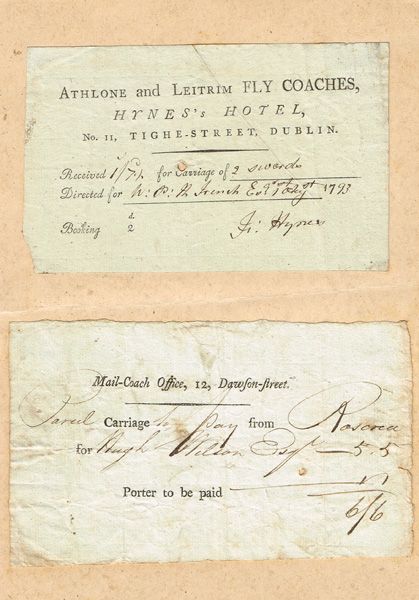 ATHLONE and LEITRIM FLY COACHES,
HYNES's HOTEL,
No. 11, TIGHE-STREET, DUBLIN.
Received 1/7½ for Carriage of 2 swords
Directed for French Esqr 1793
Booking d. 2
Ji: Hynes
Mail-Coach Office, 12, Dawson-street.
Parcel Carriage to pay from Roscrea
for Hugh Wilson Esqr — 5.5
Porter to be paid 1.1
6/6